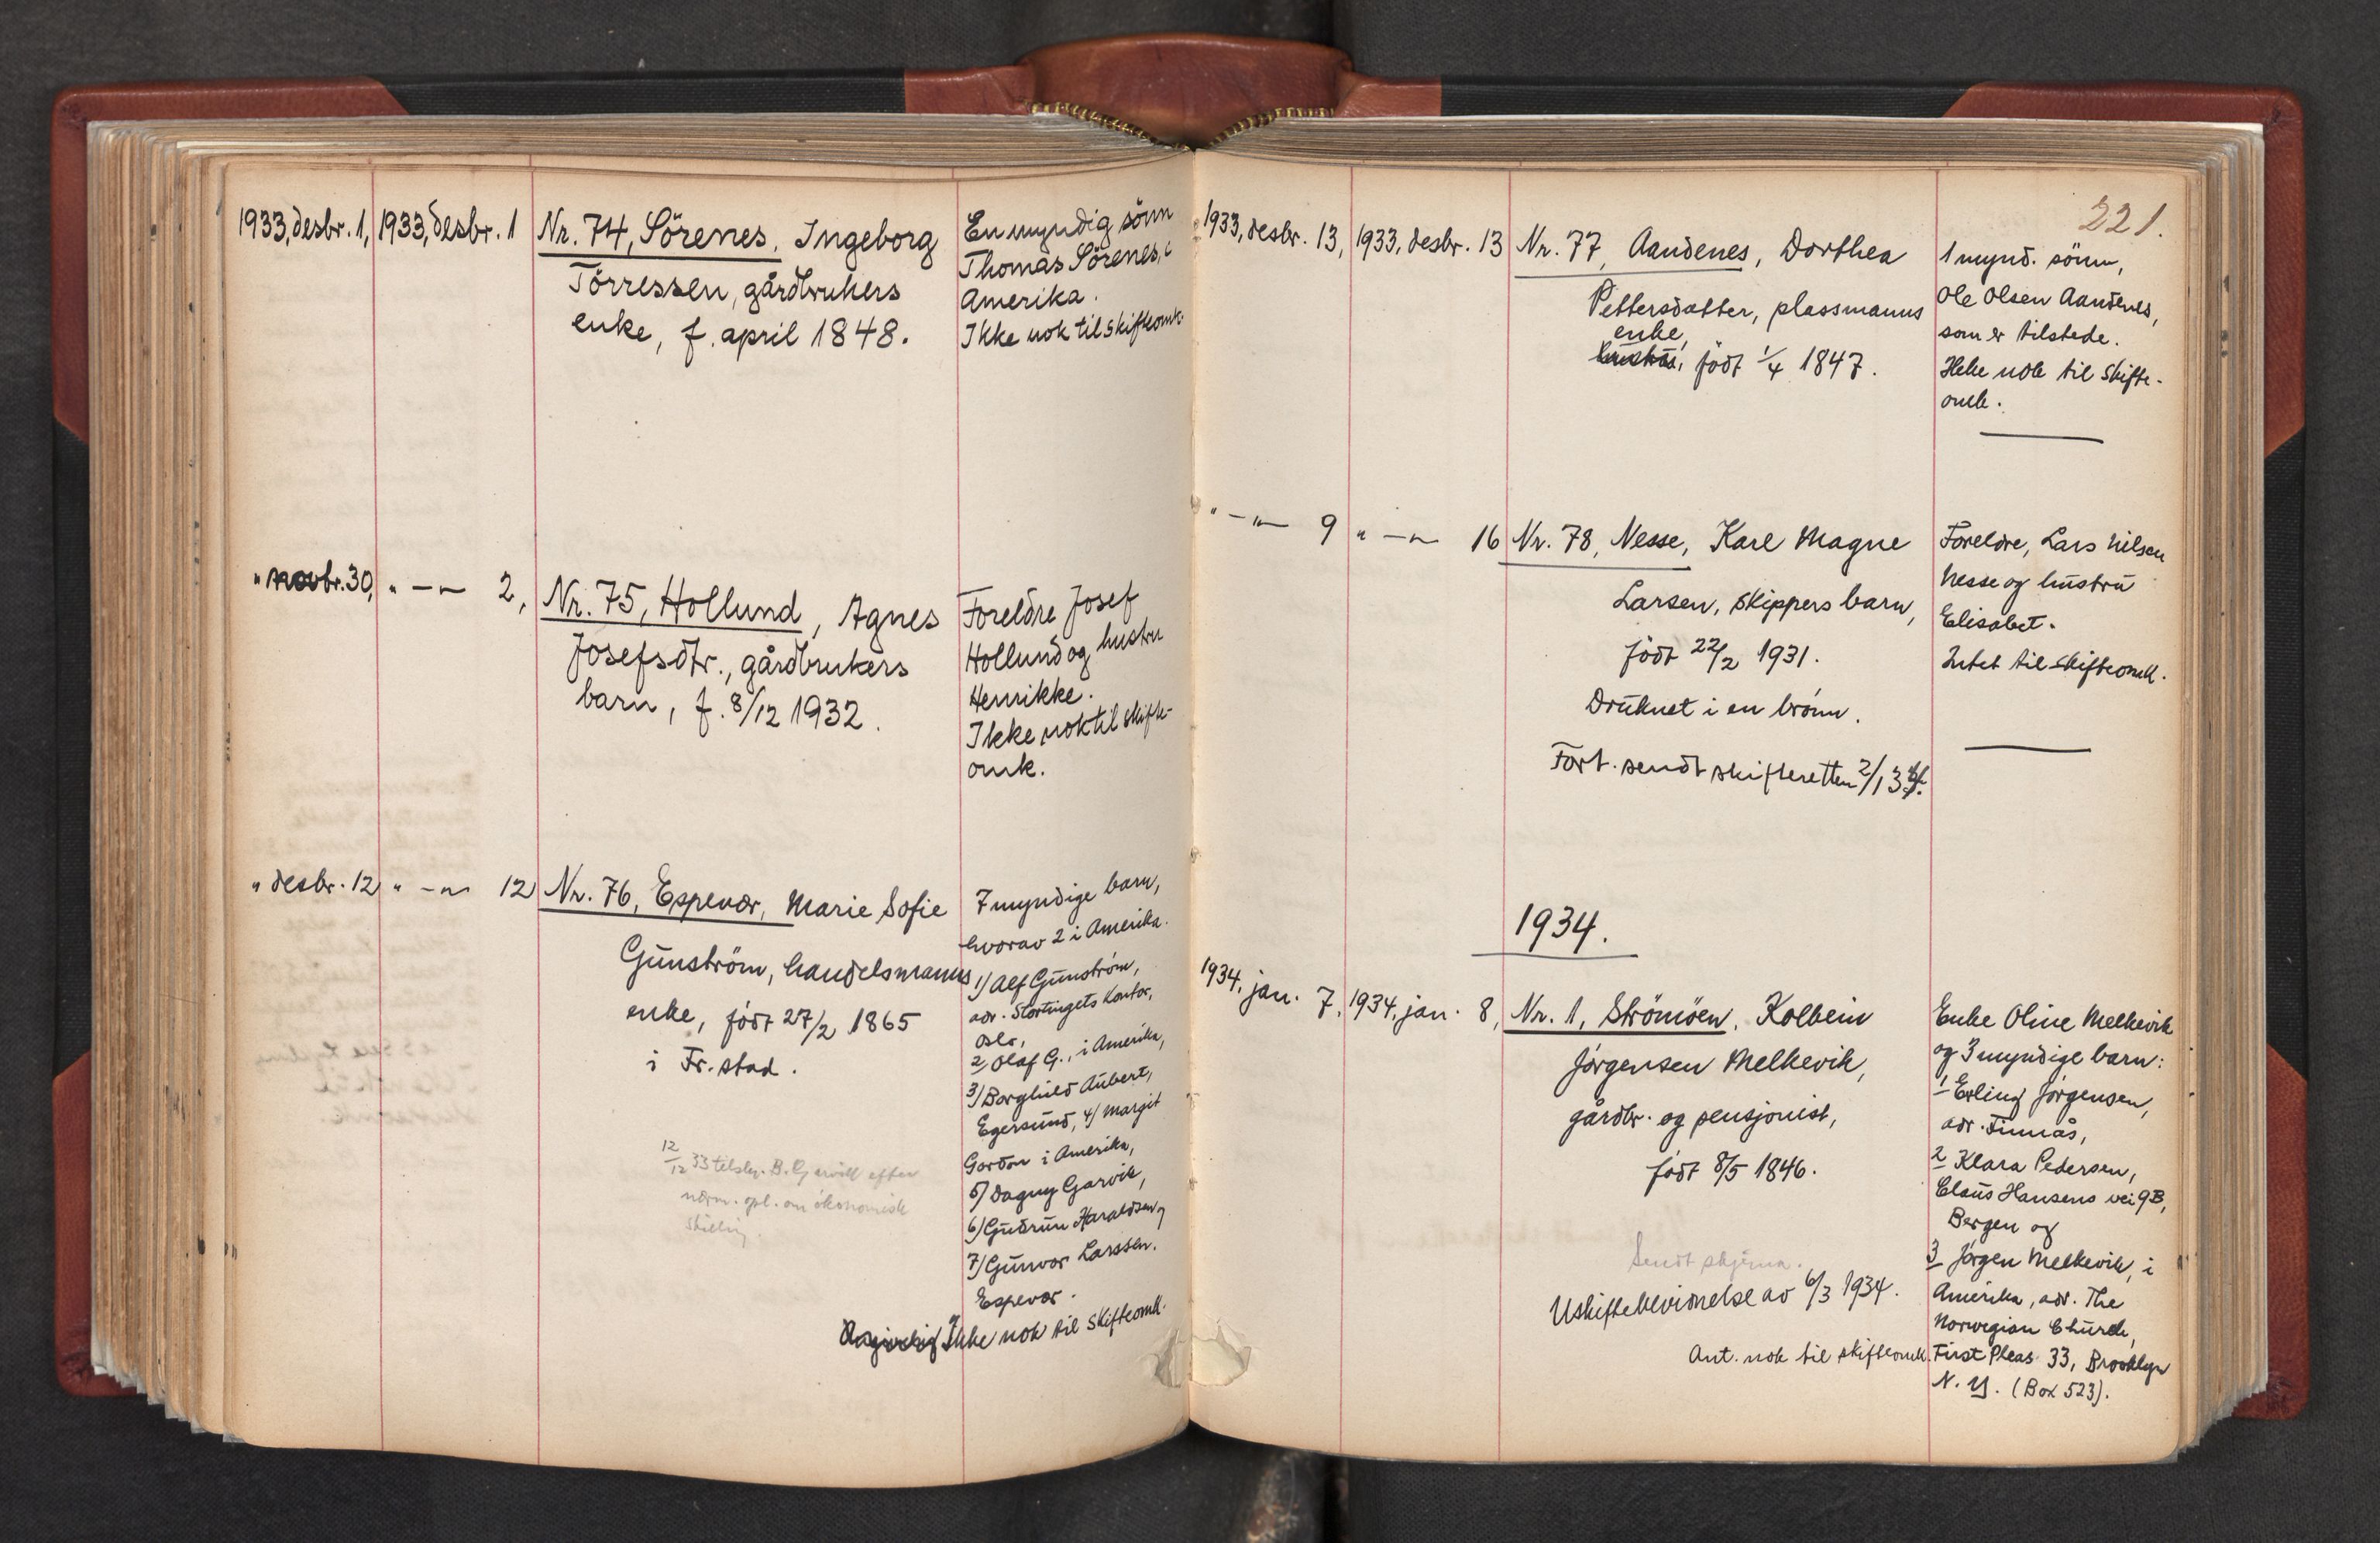 1933, desbr. 1, 1933, desbr. 1 Nr. 74, Sörenes, Ingeborg
Törressen, gårdbrukers
enke, f. april 1848.
En myndig sönn
Thomas Sörenes, i
Amerika.
Ikke nok til skifteomk.
" novbr. 30, " — " — 2, Nr. 75, Hollund, Agnes
Josefsdtr., gårdbrukers
barn, f. 8/12 1932.
Foreldre Josef
Hollund og hustru
Henrikke.
Ikke nok til skifte-
omk.
" desbr. 12 " — " — 12 Nr. 76, Espevær, Marie Sofie
Gunström, handelsmanns
enke, födt 27/2 1865
i Fr.stad.
12/12 33 tilskr. B. Garvik efter
nærm. opl. om ökonomisk
stilling.
7 myndige barn,
hvorav 2 i Amerika.
1) Alf Gunström,
adr. Stortingets Kontor,
Oslo,
2) Olaf G., i Amerika,
3) Borghild Aubert,
Egersund, 4) Margit
Gordon i Amerika,
5) Dagny Garvik,
6) Gudrun Haraldsen og
7) Gunvor Larssen.
Espevær.
Ikke nok til skifteomk.
221.
1933, desbr. 13, 1933, desbr. 13 Nr. 77, Aandenes, Dorthea
Pettersdatter, plassmanns
enke,
hustru, födt 1/4 1847.
1 mynd. sönn,
Ole Olsen Aandenes,
som er tilstede.
Ikke nok til skifte-
omk.
" — " — 9 " — " — 16 Nr. 78, Nesse, Karl Magne
Larsen, skippers barn,
födt 22/2 1931.
Druknet i en brönn.
Fort. sendt skifteretten 2/1 34.
Foreldre, Lars Nilsen
Nesse og hustru
Elisabet.
Intet til skifteomk.
1934.
1934, jan. 7, 1934, jan. 8, Nr. 1, Strömöen, Kolbein
Jörgensen Melkevik,
gårdbr. og pensjonist,
födt 8/5 1846.
Sendt skjema.
Uskiftebevidnelse av 6/3 1934.
Ant. nok til skifteomk.
Enke Oline Melkevik
og 3 myndige barn:
1 Erling Jörgensen,
adr. Finnås,
2 Klara Pedersen,
Claus Hansens vei 9B,
Bergen og
3 Jörgen Melkevik, i
Amerika, adr. The
Norwegian Church,
First Pleas 33, Brooklyn
N. Y. (Box 523).